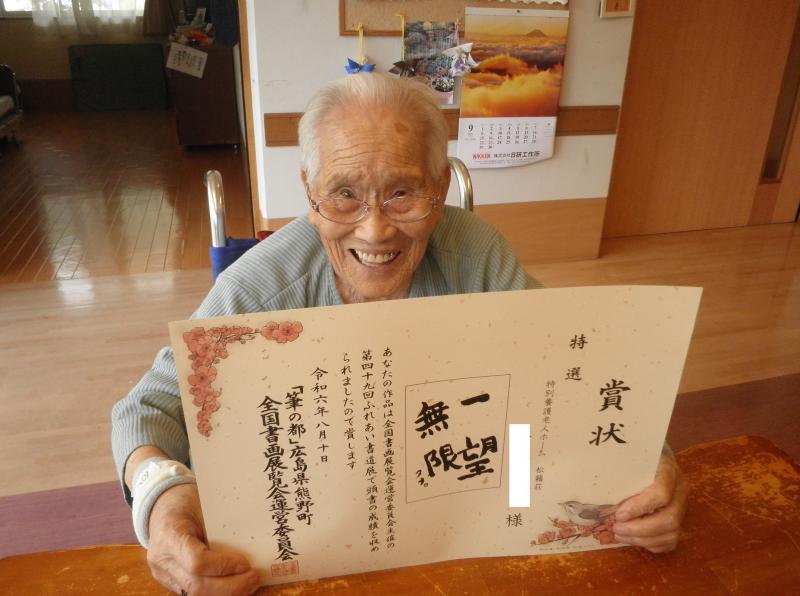 賞状
特選
特別養護老人ホーム 松籟荘
様
一望
無限
あなたの作品は全国書画展覧会運営委員会主催の
第四十九回ふれあい書道展で頭書の成績を収め
られましたので賞します
令和六年八月十日
「筆の都」広島県熊野町
全国書画展覧会運営委員会
9
NIKKEN 株式会社日研工作所